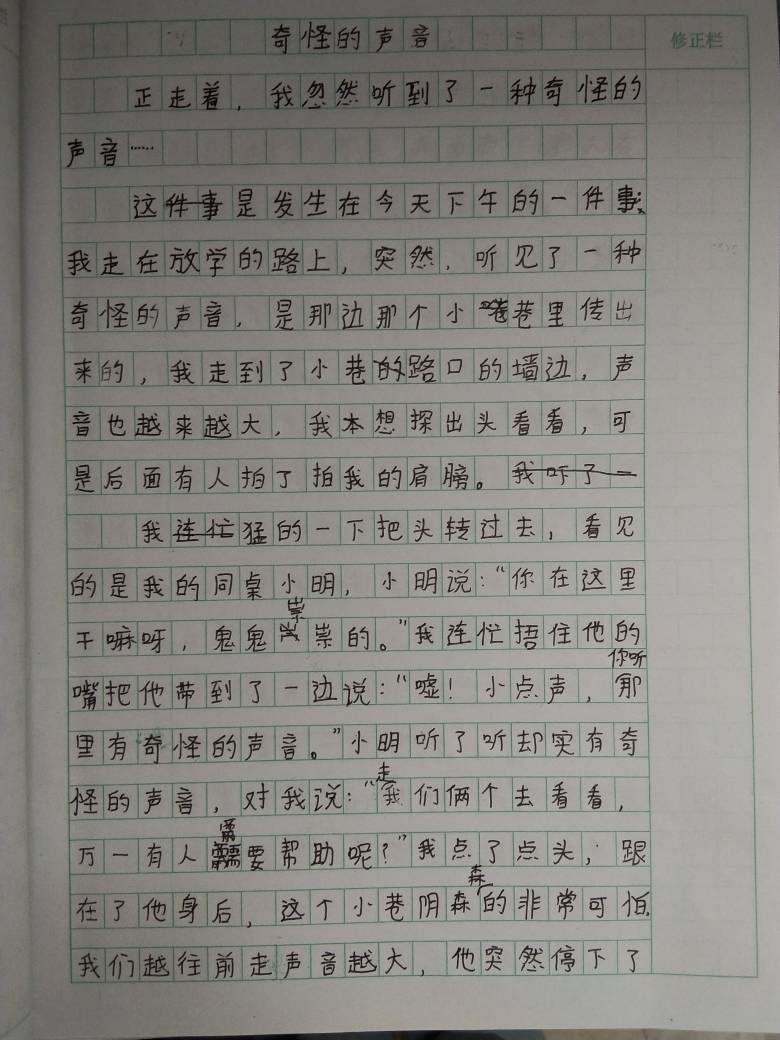 奇怪的声音
修正栏
正走着，我忽然听到了一种奇怪的
声音……
这件事是发生在今天下午的一件事：
我走在放学的路上，突然，听见了一种
奇怪的声音，是那边那个小巷里传出
来的，我走到了小巷的路口的墙边，声
音也越来越大，我本想探出头看看，可
是后面有人拍了拍我的肩膀。我吓了一
我连忙猛的一下把头转过去，看见
的是我的同桌小明，小明说：“你在这里
干嘛呀，鬼鬼祟祟的。”我连忙捂住他的
嘴把他带到了一边说：“嘘！小点声，你听那
里有奇怪的声音。”小明听了听却实有奇
怪的声音，对我说：“走我们俩个去看看，
万一有人需要帮助呢？”我点了点头，跟
在了他身后，这个小巷阴森森的非常可怕.
我们越往前走声音越大，他突然停下了